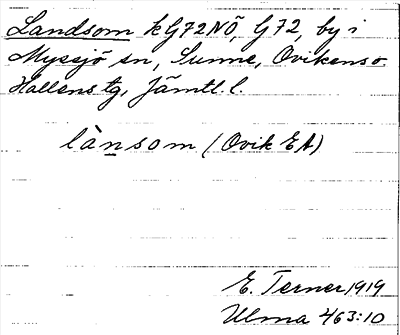 Landsom kG72NÖ, G72, by i
Myssjö sn, Sunne, Ovikens o.
Hallens tg, Jämtl. l.
lànsom (Ovik EA)
E. Terner 1919
Ulma 463:10